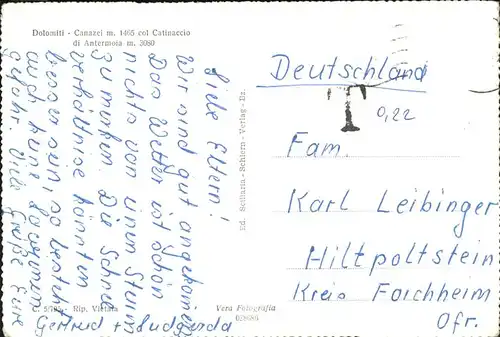 Dolomiti - Canazei m. 1465 col Catinaccio
di Antermoia m. 3080
Liebe Eltern!
Wir sind gut angekommen
Das Wetter ist schön
nichts von einem Sturm
zu merken. Die Schnee
verhältnisse könnten
besser sein, so besteht
auch keine Lawinen
gefahr. Viele Grüße Eure
Gertrud + Ludgerda
C. 5/795 - Rip. Vietata
Vera Fotografia
Ed. Sciliarin - Schlern - Verlag - Bz.
Deutschland
T 0,22
Fam.
Karl Leibinger
Hiltpoltstein
Kreis Forchheim
Ofr.